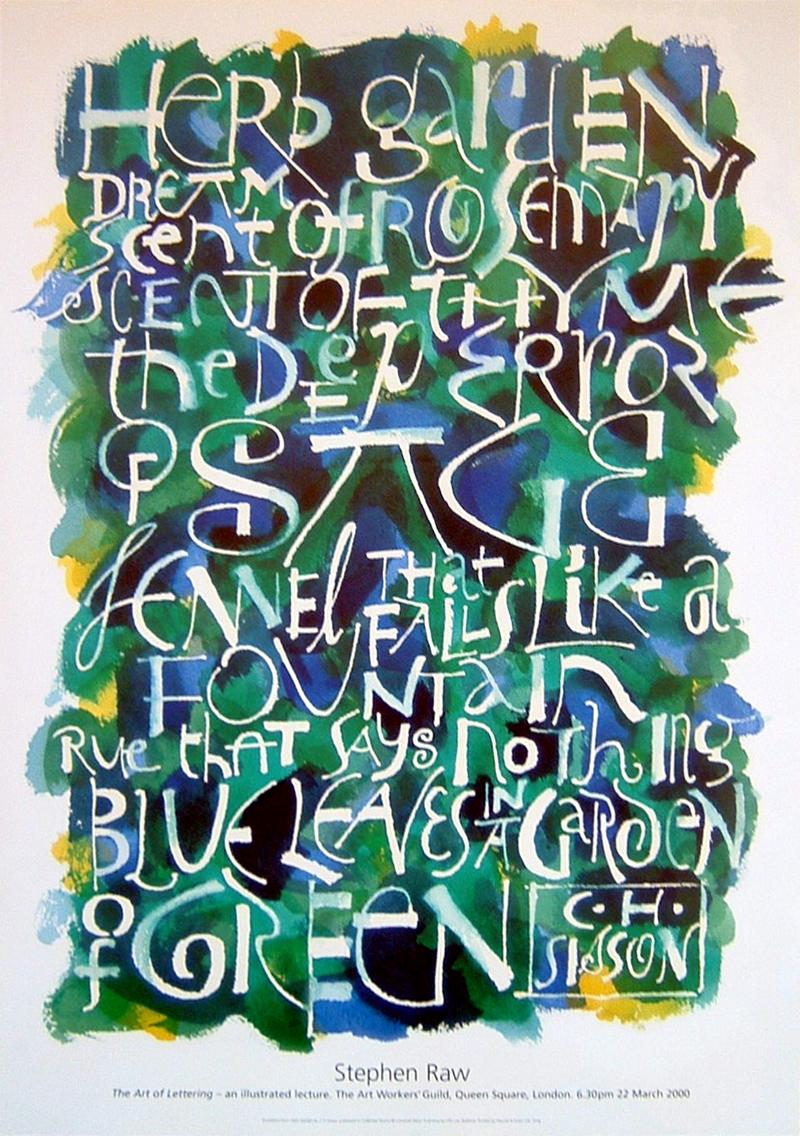 Herb gardEN
DREAM
scent of ROSEMARY
SCENT OF THYME
the DeEp ERROR
OF SAGE
fENNEl THat FAllS LiKe a
FOUNTain
RUe thAT SAYs noThing
BLUE LEAVES IN A GaRDeN
of GREEN C·H·
SISSON
Stephen Raw
The Art of Lettering – an illustrated lecture. The Art Workers' Guild, Queen Square, London. 6.30pm 22 March 2000